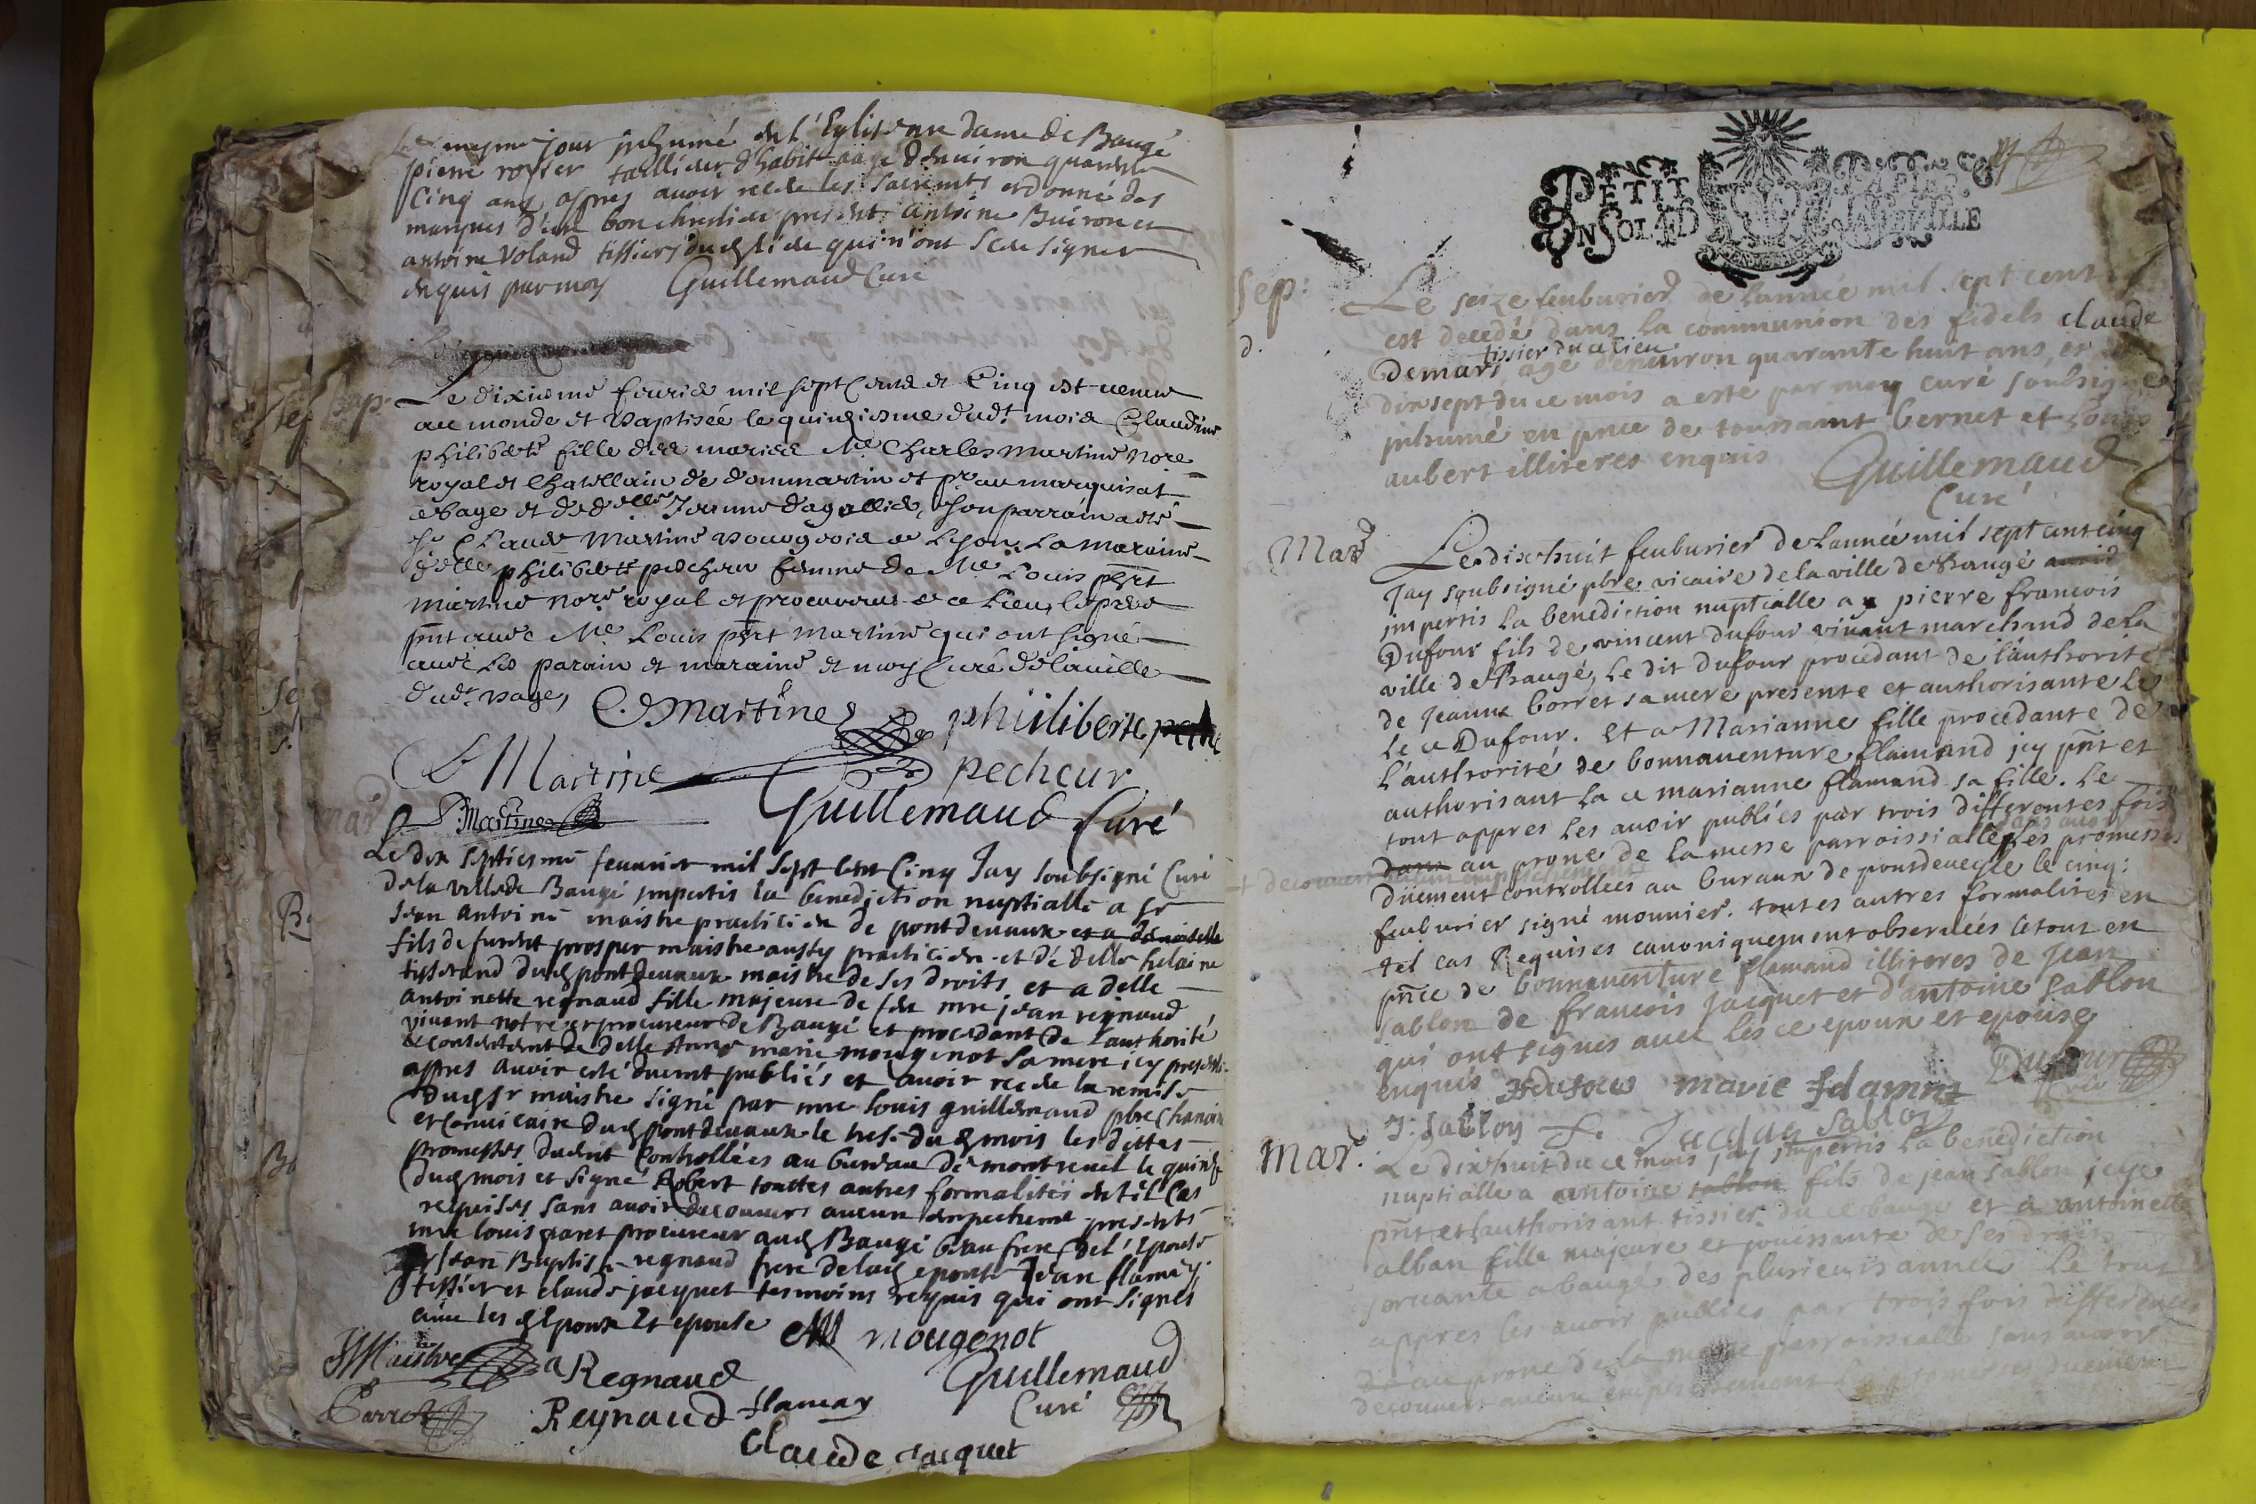 Le mesme jour inhumé en l'Eglise nre dame de Baugé
pierre royer taillieur d'habit aagé d'enuiron quarante
Cinq ans apres auoir receu les sacremts et donné des
marques d'un bon chrestien presents antoine Buiron et
antoine Voland tissiers dud lieu qui n'ont sceu signer
enquis par moy Guillemaud Curé
bap.
Le dixieme feurier mil sept Cents et Cinq est venue
au monde et baptisée le quinziesme dudt. mois Claudine
philiberte fille des mariés Me Charles Martine nore
royal et Chatellain de dommartin et pr au marquisat
de bage et de delle Jeanne dagallier, son parrain a été
sr Claude Martine bourgeois de Lyon La maraine
delle philiberte pecheur femme de Me Louis pbert
Martine nore royal et procureur de ce Lieu, le pere
pnt auec Me Louis pbert Martine qui ont signé
auec Les parain et maraine et moy Curé de la ville
dudt bage,
C Martine philiberte
Martine pecheur
Martine Guillemaud Curé
Le dix septiesme feurier mil sept cent Cinq Jay soubsigné Curé
de la ville de Baugé impertis la benediction nuptialle a sr
Jean Antoine maistre practicien de pontdevaux et a damoiselle
fils de furent prosper maistre aussy practicien et de delle helaine
tisserand dud pontdevaux maistre de ses droits et a delle
antoinette regnaud fille majeure de feu mre jean regnaud
viuant notre et procureur de Baugé et procedant de lauthorité
et consentent de delle Anne marie mougenot sa mere icy presente
apres auoir esté duemt publiés et auoir receu la remise
dud sr maistre signé par mre louis guillemaud pbre Chanoin
et Couicaire dud pontdevaux le dud mois les dittes
promesses duemt Controllées au bureau de montreuel le quinze
dud mois et signé Robert touttes autres formalités en tel Cas
requises sans auoir decouuert aucun empecheme presents
mre louis paret procureur aud Baugé beau frere de l'epouse
Jean Baptiste regnaud frere de lad epouse Jean flamay
tissier et claude jacquet tesmoins requis qui ont signés
auec les d epoux et epouse AM Mougenot
JMaistre a Regnaud Guillemaud
Parret Reynaud flamay Curé
claude Jacquet
PETIT PAPIER
UN SOL LA FEUILLE
Sep:
d.
Le seize feuburier de lannée mil sept cent
est decedé dans la communion des fidels claude
tissier du ce lieu
Demars agé d'enuiron quarante huit ans, et
dixsept du ce mois a esté par moy curé soubsigné
inhumé en pnce de toussaint bernet et Louis
aubert illiteres enquis Guillemaud
Curé
Mar
Le dixhuit feuburier de lannée mil sept cent cinq
Jay soubsigné pbre vicaire de la ville de Baugé
impertis la benediction nuptialle a pierre françois
Dufour fils de vincent Dufour viuant marchand de la
ville de Baugé, Le dit Dufour procedant de l'authorité
de Jeanne borret sa mere presente et authorisante Le
Le ce Dufour. Et a Marianne fille procedante de
L'authorité de bonnauenture flamand icy pnt et
authorisant La ce marianne flamand sa fille. Le
tout appres Les auoir publiés par trois differentes fois
sans auoir
dans au prone de la messe parroissialle, Les promesses
et decouuert aucun empechement
Düement controllees au buraux de pontdeuesle le cinq:
feuburier signé monnier. toutes autres formalites en
tel cas Requises canoniquement obseruéés le tout en
pnce de bonnauenture flamand illiteres de Jean
sablon de francois Jacquet et d'antoine sablon
qui ont signés auec Les ce epoux et epouse
enquis marie flamint
J: Sabloy Jacques Sabloy
Mar.
Le dixhuit du ce mois Jay impertis La benediction
nuptialle a antoine sablon fils de jean sablon icye
pnt et Lauthorisant tissier du ce bauge et a antoinette
alban fille majeure et jouissante de ses droits
seruante a baugé des plusieurs année Le tout
appres les auoir publies par trois fois differentes
au prone de la messe parroissialle sans auoir
decouuert aucun empechement duement